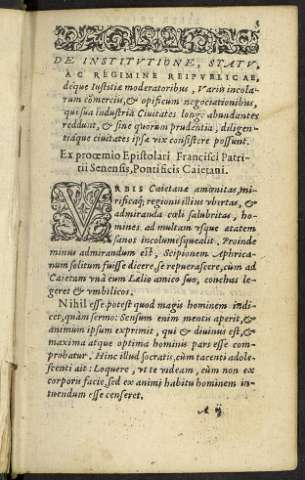 3
DE INSTITVTIONE, STATV,
AC REGIMINE REIPVBLICAE,
déque Iustitiæ moderatoribus, Variis incola-
rum cōmerciis, & opificum negociationibus,
qui sua industria Ciuitates longè abundantes
reddunt, & sine quorum prudentia, diligen-
tiáque ciuitates ipsæ vix consistere possunt.
Ex proœmio Epistolari Francisci Patri-
tii Senensis, Pontificis Caietani.
VRBIS Caietanæ amœnitas, mi-
rificáq; regionis illius vbertas, &
admiranda cœli salubritas, ho-
mines ad multam vsque ætatem
sanos incolumésque alit. Proinde
minus admirandum est, Scipionem Aphrica-
num solitum fuisse dicere, se repuerascere, cùm ad
Caietam vnà cum Lælio amico suo, conchas le-
geret & vmbilicos.
Nihil esse potest quod magis hominem indi-
cet, quàm sermo: Sensum enim mentis aperit, &
animum ipsum exprimit, qui & diuinus est, &
maxima atque optima hominis pars esse com-
probatur. Hinc illud Socratis, cùm tacenti adole-
scenti ait: Loquere, vt te videam, cùm non ex
corporis facie, sed ex animi habitu hominem in-
tuendum esse censeret.
A ij